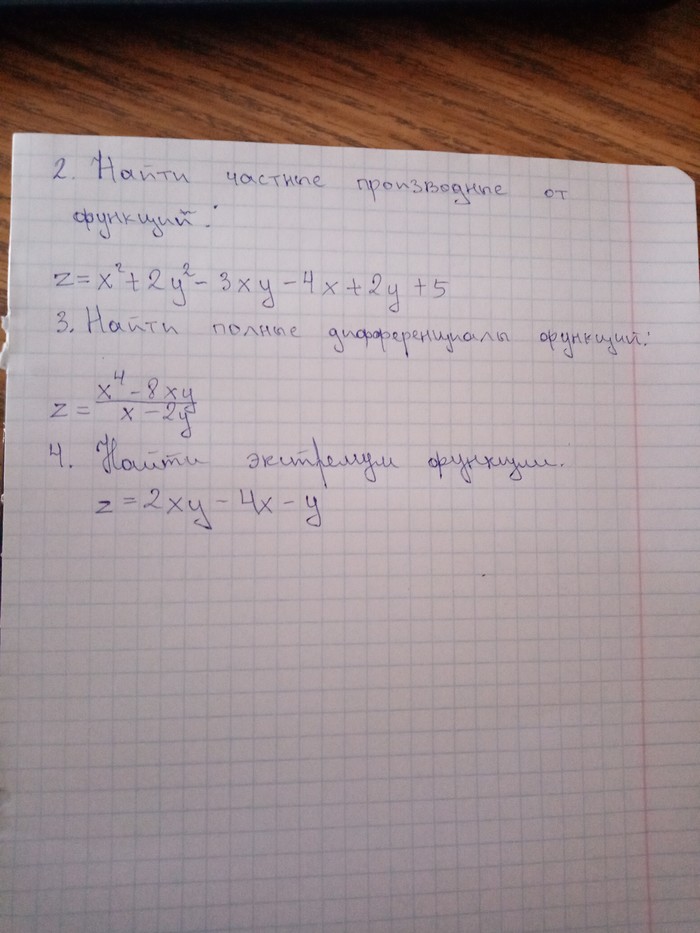 2. Найти частные производные от
функций:
z = x² + 2y² - 3xy - 4x + 2y + 5
3. Найти полные дифференциалы функций:
z = (x⁴ - 8xy)/(x - 2y)
4. Найти экстремум функции.
z = 2xy - 4x - y